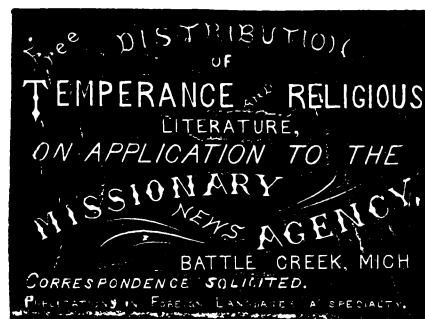 Free DISTRIBUTION
OF
TEMPERANCE AND RELIGIOUS
LITERATURE,
ON APPLICATION TO THE
MISSIONARY
NEWS AGENCY.
BATTLE CREEK, MICH
CORRESPONDENCE SOLICITED.
PUBLICATIONS IN FOREIGN LANGUAGES A SPECIALTY.